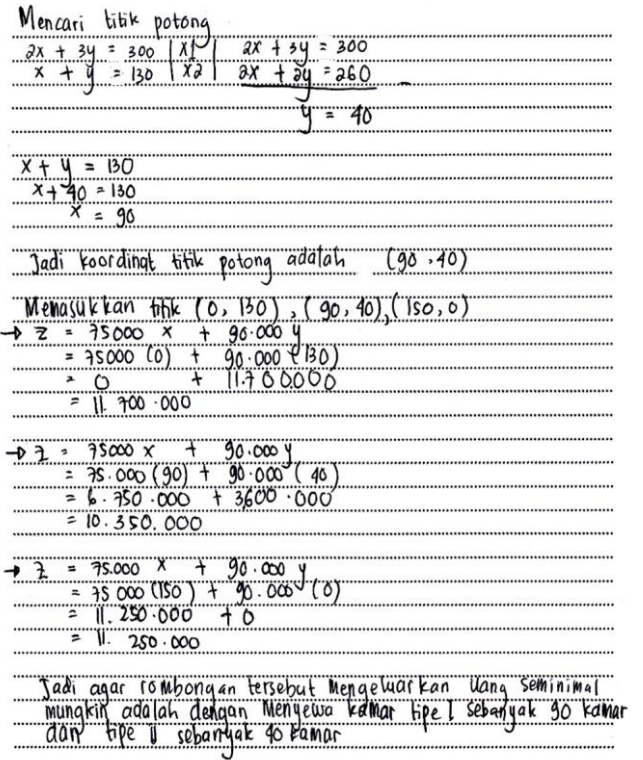 Mencari titik potong
2x + 3y = 300 | x1 | 2x + 3y = 300
x + y = 130 | x2 | 2x + 2y = 260 -
y = 40
x + y = 130
x + 40 = 130
x = 90
Jadi koordinat titik potong adalah (90,40)
Memasukkan titik (0, 130), (90, 40), (150, 0)
→ z = 75000 x + 90.000 y
= 75000 (0) + 90.000 (130)
= 0 + 11.700000
= 11.700.000
→ z = 75000 x + 90.000 y
= 75.000 (90) + 90.000 (40)
= 6.750.000 + 3600.000
= 10.350.000
→ z = 75.000 x + 90.000 y
= 75 000 (150) + 90.000 (0)
= 11.250.000 + 0
= 11. 250.000
Jadi agar rombongan tersebut mengeluarkan uang seminimal
mungkin adalah dengan menyewa kamar tipe I sebanyak 90 kamar
dan tipe II sebanyak 40 kamar